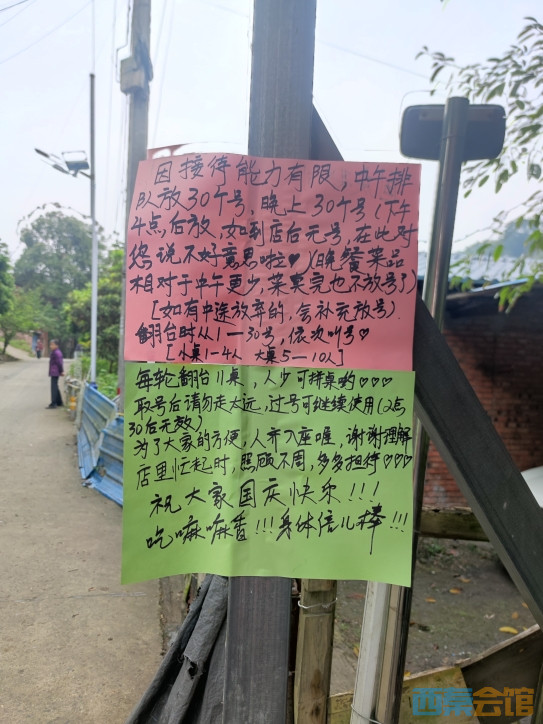 因接待能力有限，中午排
队放30个号，晚上30个号（下午
4点后放，如到店后无号，在此对
您说不好意思啦♥）（晚餐菜品
相对于中午更少，菜卖完也不放号了）
［如有中途放弃的，会补充放号］．
翻台时从1—30号，依次叫号♡
［小桌1-4人 大桌5—10人］
每轮翻台11桌，人少可拼桌哟♡♡♡
取号后请勿走太远，过号可继续使用（12点
30后无效）
为了大家的方便，人齐入座喔，谢谢理解
店里忙起时，照顾不周，多多担待♡♡♡
祝大家国庆快乐！！！
吃嘛嘛香！！！身体倍儿棒！！！
西秦会馆